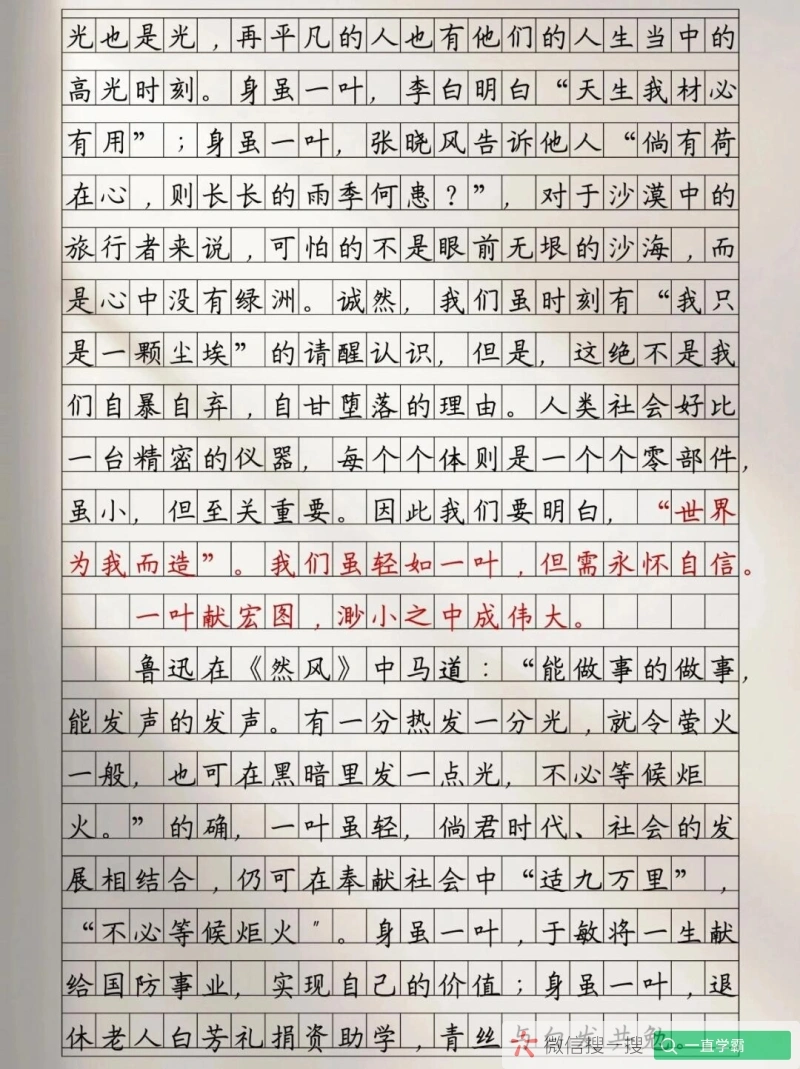 光也是光，再平凡的人也有他们的人生当中的
高光时刻。身虽一叶，李白明白“天生我材必
有用”；身虽一叶，张晓风告诉他人“倘有荷
在心，则长长的雨季何患？”，对于沙漠中的
旅行者来说，可怕的不是眼前无垠的沙海，而
是心中没有绿洲。诚然，我们虽时刻有“我只
是一颗尘埃”的请醒认识，但是，这绝不是我
们自暴自弃，自甘堕落的理由。人类社会好比
一台精密的仪器，每个个体则是一个个零部件，
虽小，但至关重要。因此我们要明白，“世界
为我而造”。我们虽轻如一叶，但需永怀自信。
一叶献宏图，渺小之中成伟大。
鲁迅在《然风》中马道：“能做事的做事，
能发声的发声。有一分热发一分光，就令萤火
一般，也可在黑暗里发一点光，不必等候炬
火。”的确，一叶虽轻，倘君时代、社会的发
展相结合，仍可在奉献社会中“适九万里”，
“不必等候炬火"。身虽一叶，于敏将一生献
给国防事业，实现自己的价值；身虽一叶，退
休老人白芳礼捐资助学，青丝
微信搜一搜 一直学霸